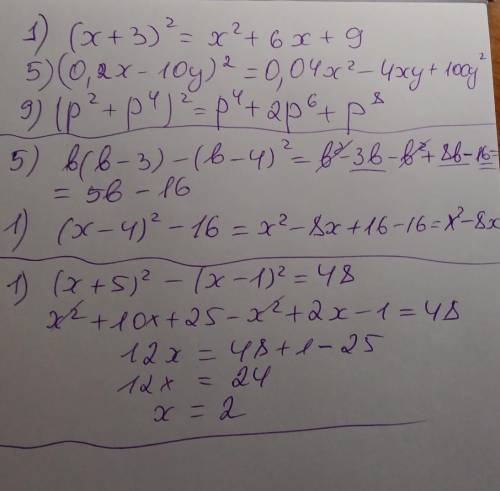 1) (x+3)² = x² + 6x + 9
5) (0,2x - 10y)² = 0,04x² - 4xy + 100y²
9) (p² + p⁴)² = p⁴ + 2p⁶ + p⁸
5) b(b-3) - (b-4)² = b² - 3b - b² + 8b - 16 =
= 5b - 16
1) (x-4)² - 16 = x² - 8x + 16 - 16 = x² - 8x
1) (x+5)² - (x-1)² = 48
x² + 10x + 25 - x² + 2x - 1 = 48
12x = 48 + 1 - 25
12x = 24
x = 2